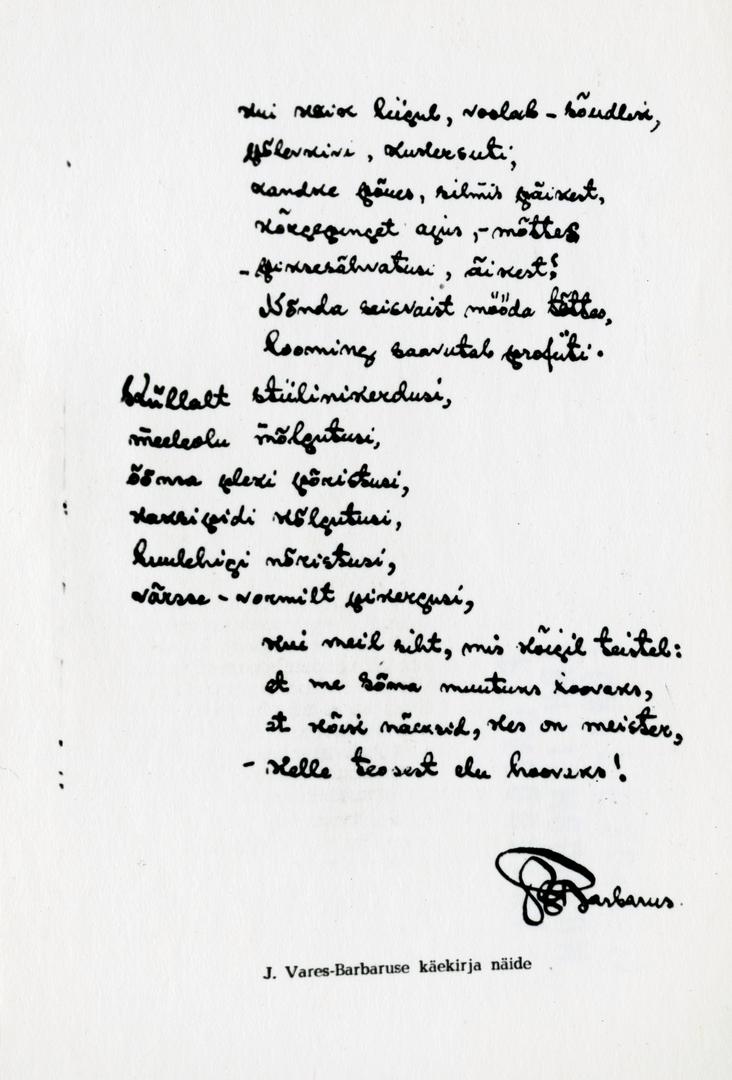 kui kõik liigub, voolab – sõudlen,
põlevkivi, kustersuti;
kandke põues, silmis päikest,
kõrgepinget ajus, – mõttes
– piksesähvatusi, äikest!
Nõnda seisvaist mööda tõttes,
looming saavutab profiiti.
Küllalt stiilinikerdusi,
meeleolu mõlgutusi,
õõnsa pleki põristusi,
kaksipidi kõlgutusi,
luulehigi nõristusi,
värsse – vormilt pikergusi,
kui meil siht, mis kõigil teistel:
et me sõna muutuks koovaks,
et kõik näeksid, kes on meister,
– kelle teosest elu hoovaks!
Barbarus.
J. Vares-Barbaruse käekirja näide